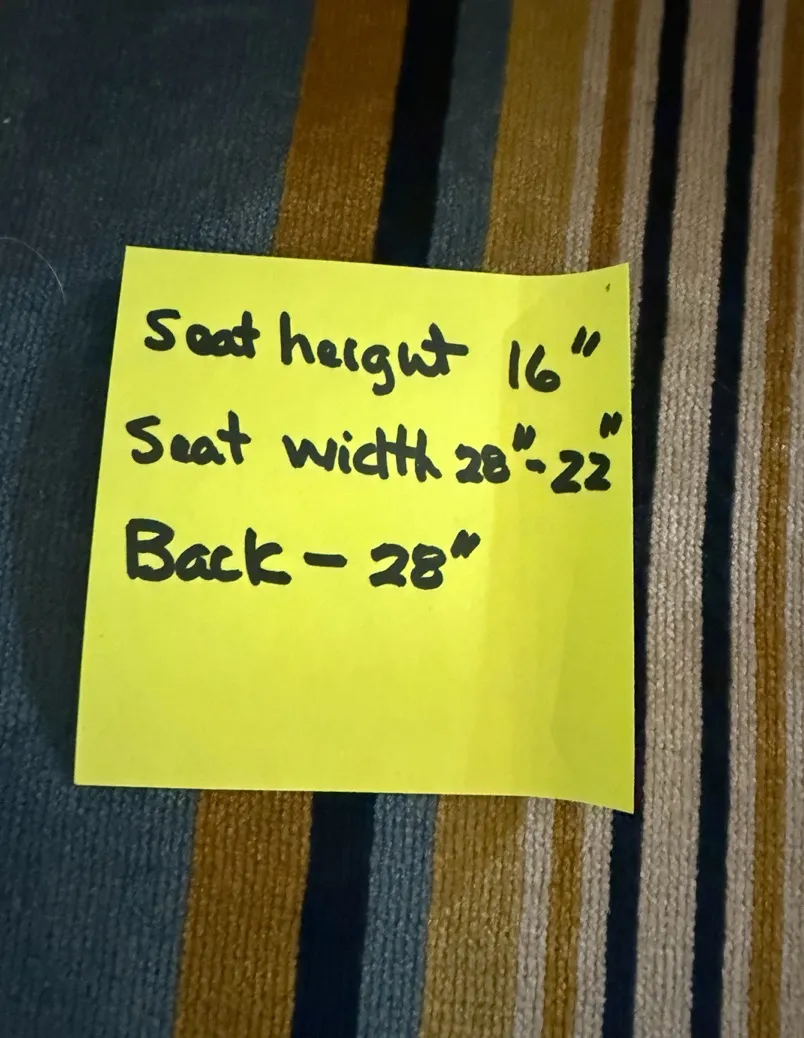 Seat height 16"
Seat width 28"-22"
Back - 28"